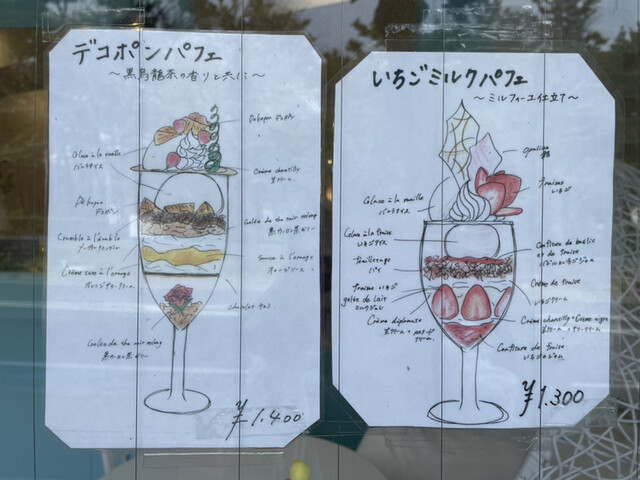 デコポンパフェ
～黒烏龍茶の香りと共に～
Dekopon デコポン
Glace à la vanille
バニラアイス
Crème chantilly
生クリーム
Dekopon
デコポン
Gelée de thé noir oolong
黒ウーロン茶ゼリー
Crumble à l'érable
Sauce à l'orange
オレンジソース
Crème sure à l'orange
オレンジサワークリーム
chocolat チョコ
Gelée de thé noir oolong
黒ウーロン茶ゼリー
¥1.400
いちごミルクパフェ
～ミルフィーユ仕立て～
opaline
Glace à la vanille
バニラアイス
Fraises
いちご
Glace à la fraise
いちごアイス
Confiture de basilic
et de fraise
バジルといちごジャム
feuilletage
パイ
Crème de fraise
いちごクリーム
Fraises いちご
gelée de lait
ミルクジュレ
Crème chantilly + Crème aigre
生クリーム + サワークリーム
Crème diplomate
生クリーム + カスタードクリーム
Confiture de fraise
いちごジャム
¥1.300